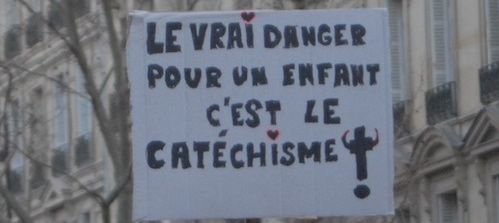 LE VRAI DANGER
POUR UN ENFANT
C'EST LE
CATÉCHISME !